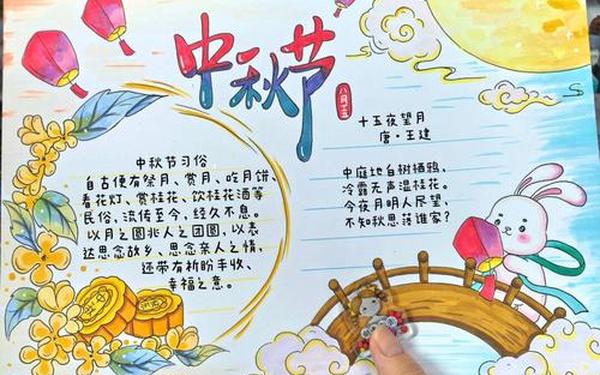 中秋节
八月十五
中秋节习俗
自古便有祭月、赏月、吃月饼、
看花灯、赏桂花、饮桂花酒等
民俗，流传至今，经久不息。
以月之圆兆人之团圆，以表
达思念故乡、思念亲人之情，
还带有祈盼丰收、
幸福之意。
十五夜望月
唐·王建
中庭地白树栖鸦，
冷露无声湿桂花。
今夜月明人尽望，
不知秋思落谁家？